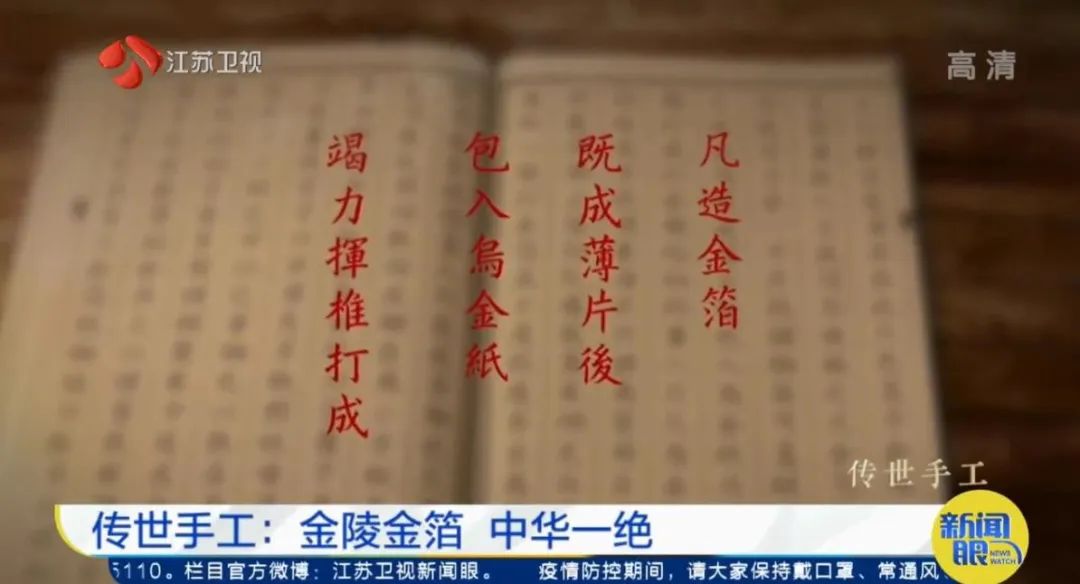 江苏卫视
高清
凡造金箔
既成薄片後
包入烏金紙
竭力揮椎打成
传世手工
传世手工：金陵金箔 中华一绝
新闻眼
NEWS WATCH
5110。栏目官方微博：江苏卫视新闻眼。 疫情防控期间，请大家保持戴口罩、常通风、